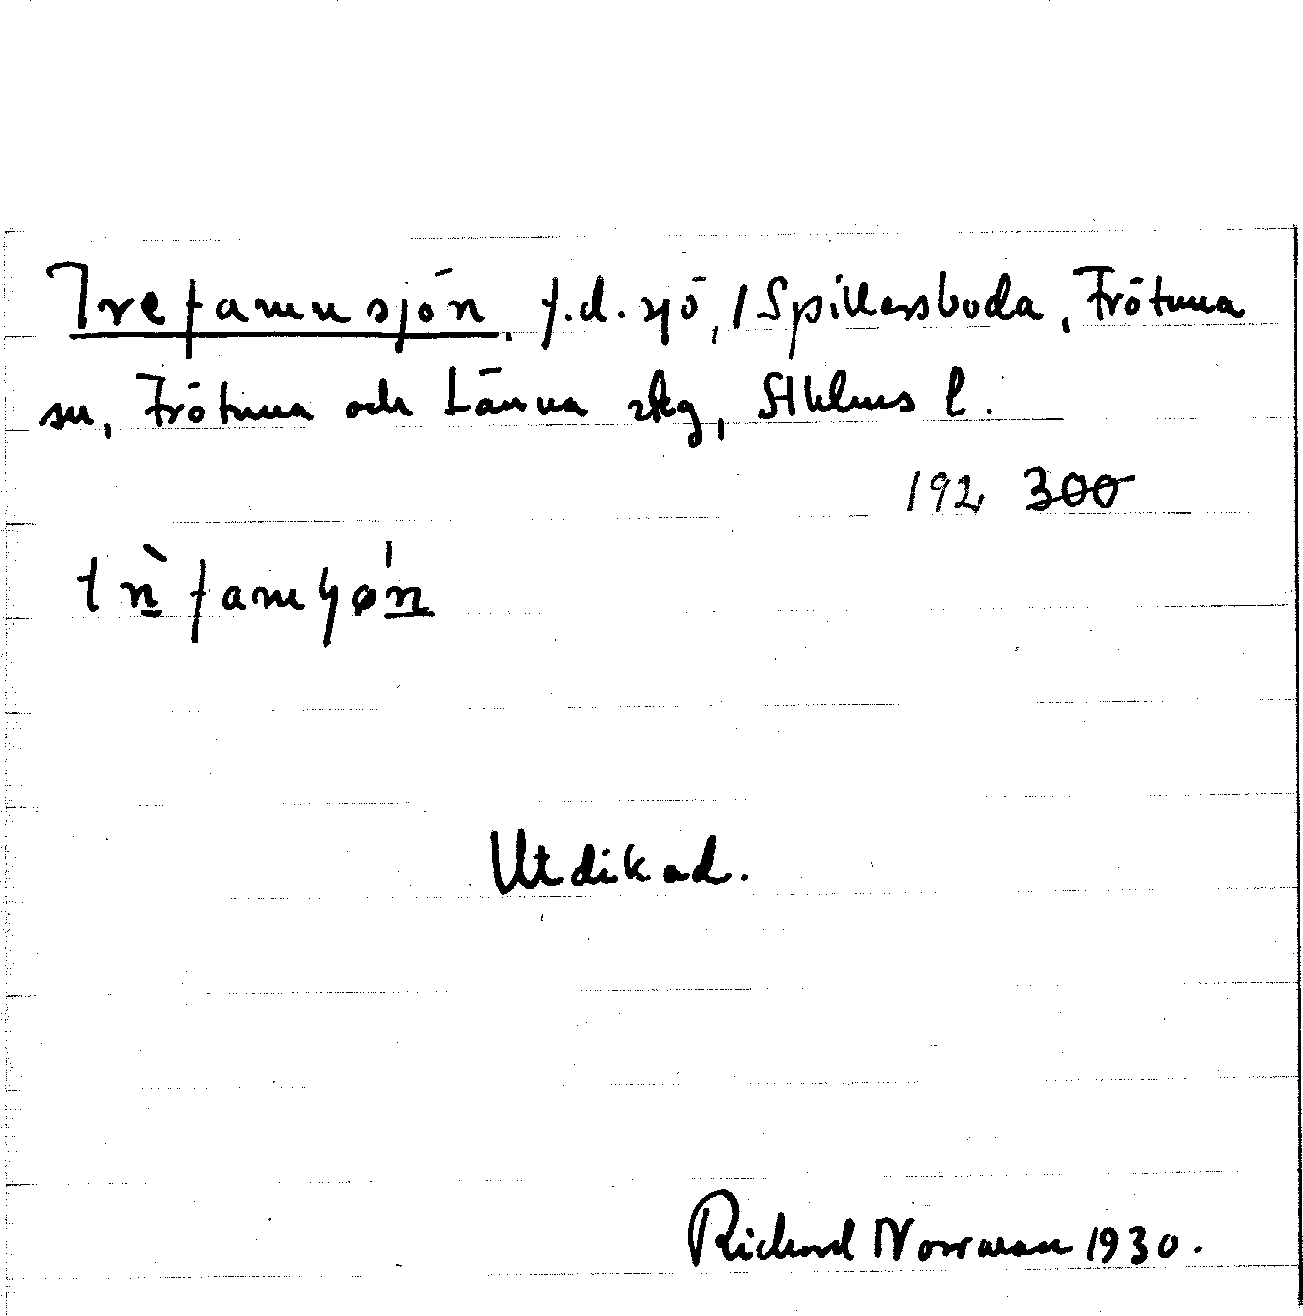 Trefamnsjön, f.d. sjö, / Spillersboda, Frötuna
sn, Frötuna och Länna skg, Sthlms l.
192 300
Utdikad.
Richard Norrman 1930.